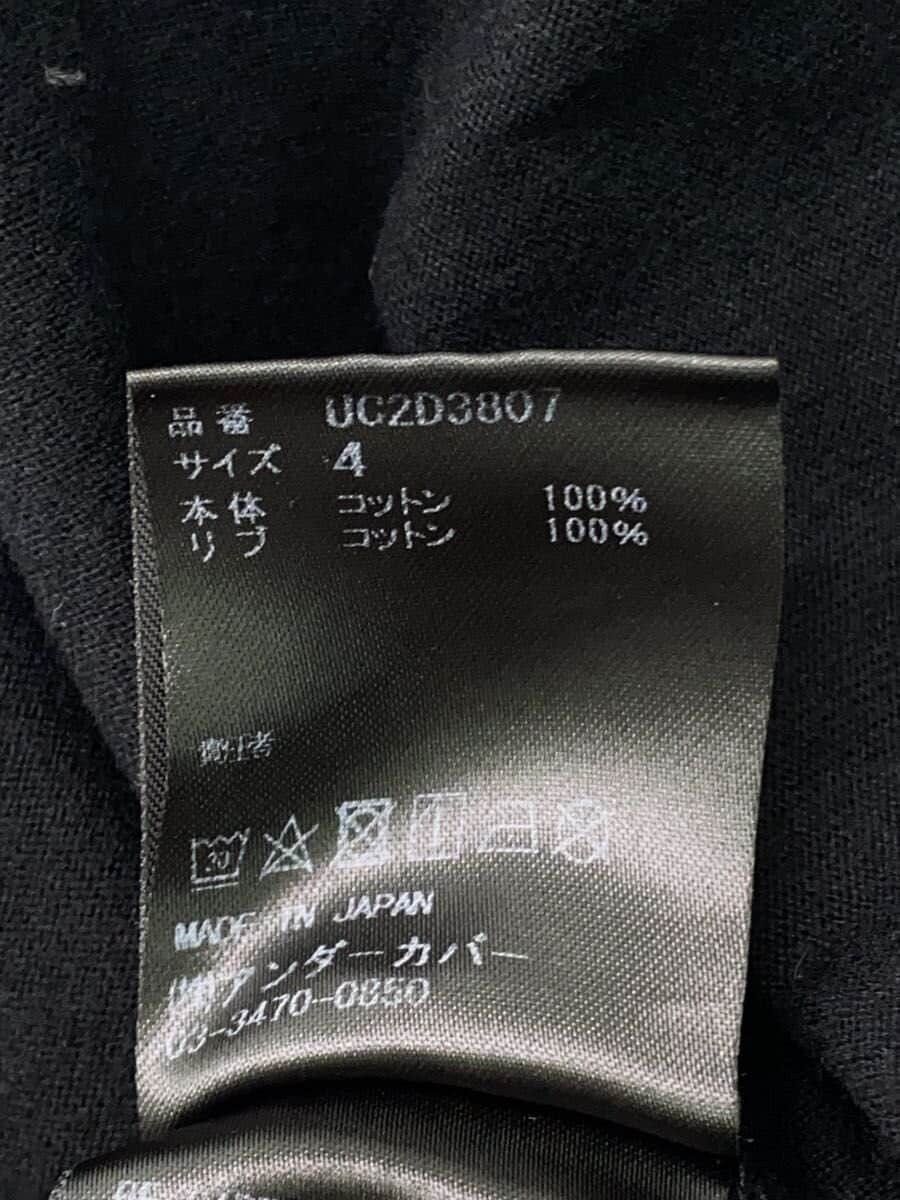 品番 UC2D3807
サイズ 4
本体 コットン 100%
リブ コットン 100%
MADE IN JAPAN
(株)アンダーカバー
03-3470-0850